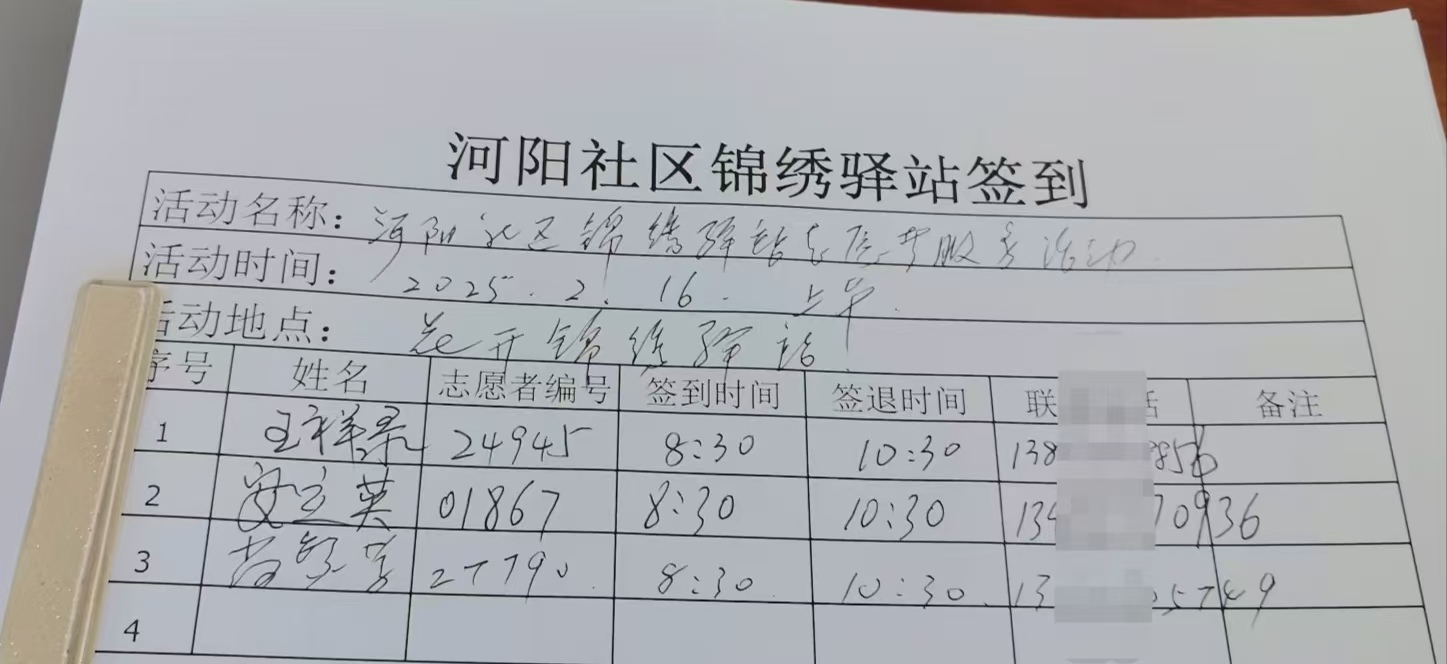 河阳社区锦绣驿站签到
活动名称：河阳社区锦绣驿站志愿者服务活动
活动时间：2025.2.16. 上午.
活动地点：花开锦绣驿站
序号 姓名 志愿者编号 签到时间 签退时间 联 话 备注
1 王祥柔 24945 8:30 10:30 138 856
2 安立英 01867 8:30 10:30 134 70936
3 27790 8:30 10:30 13 05749
4